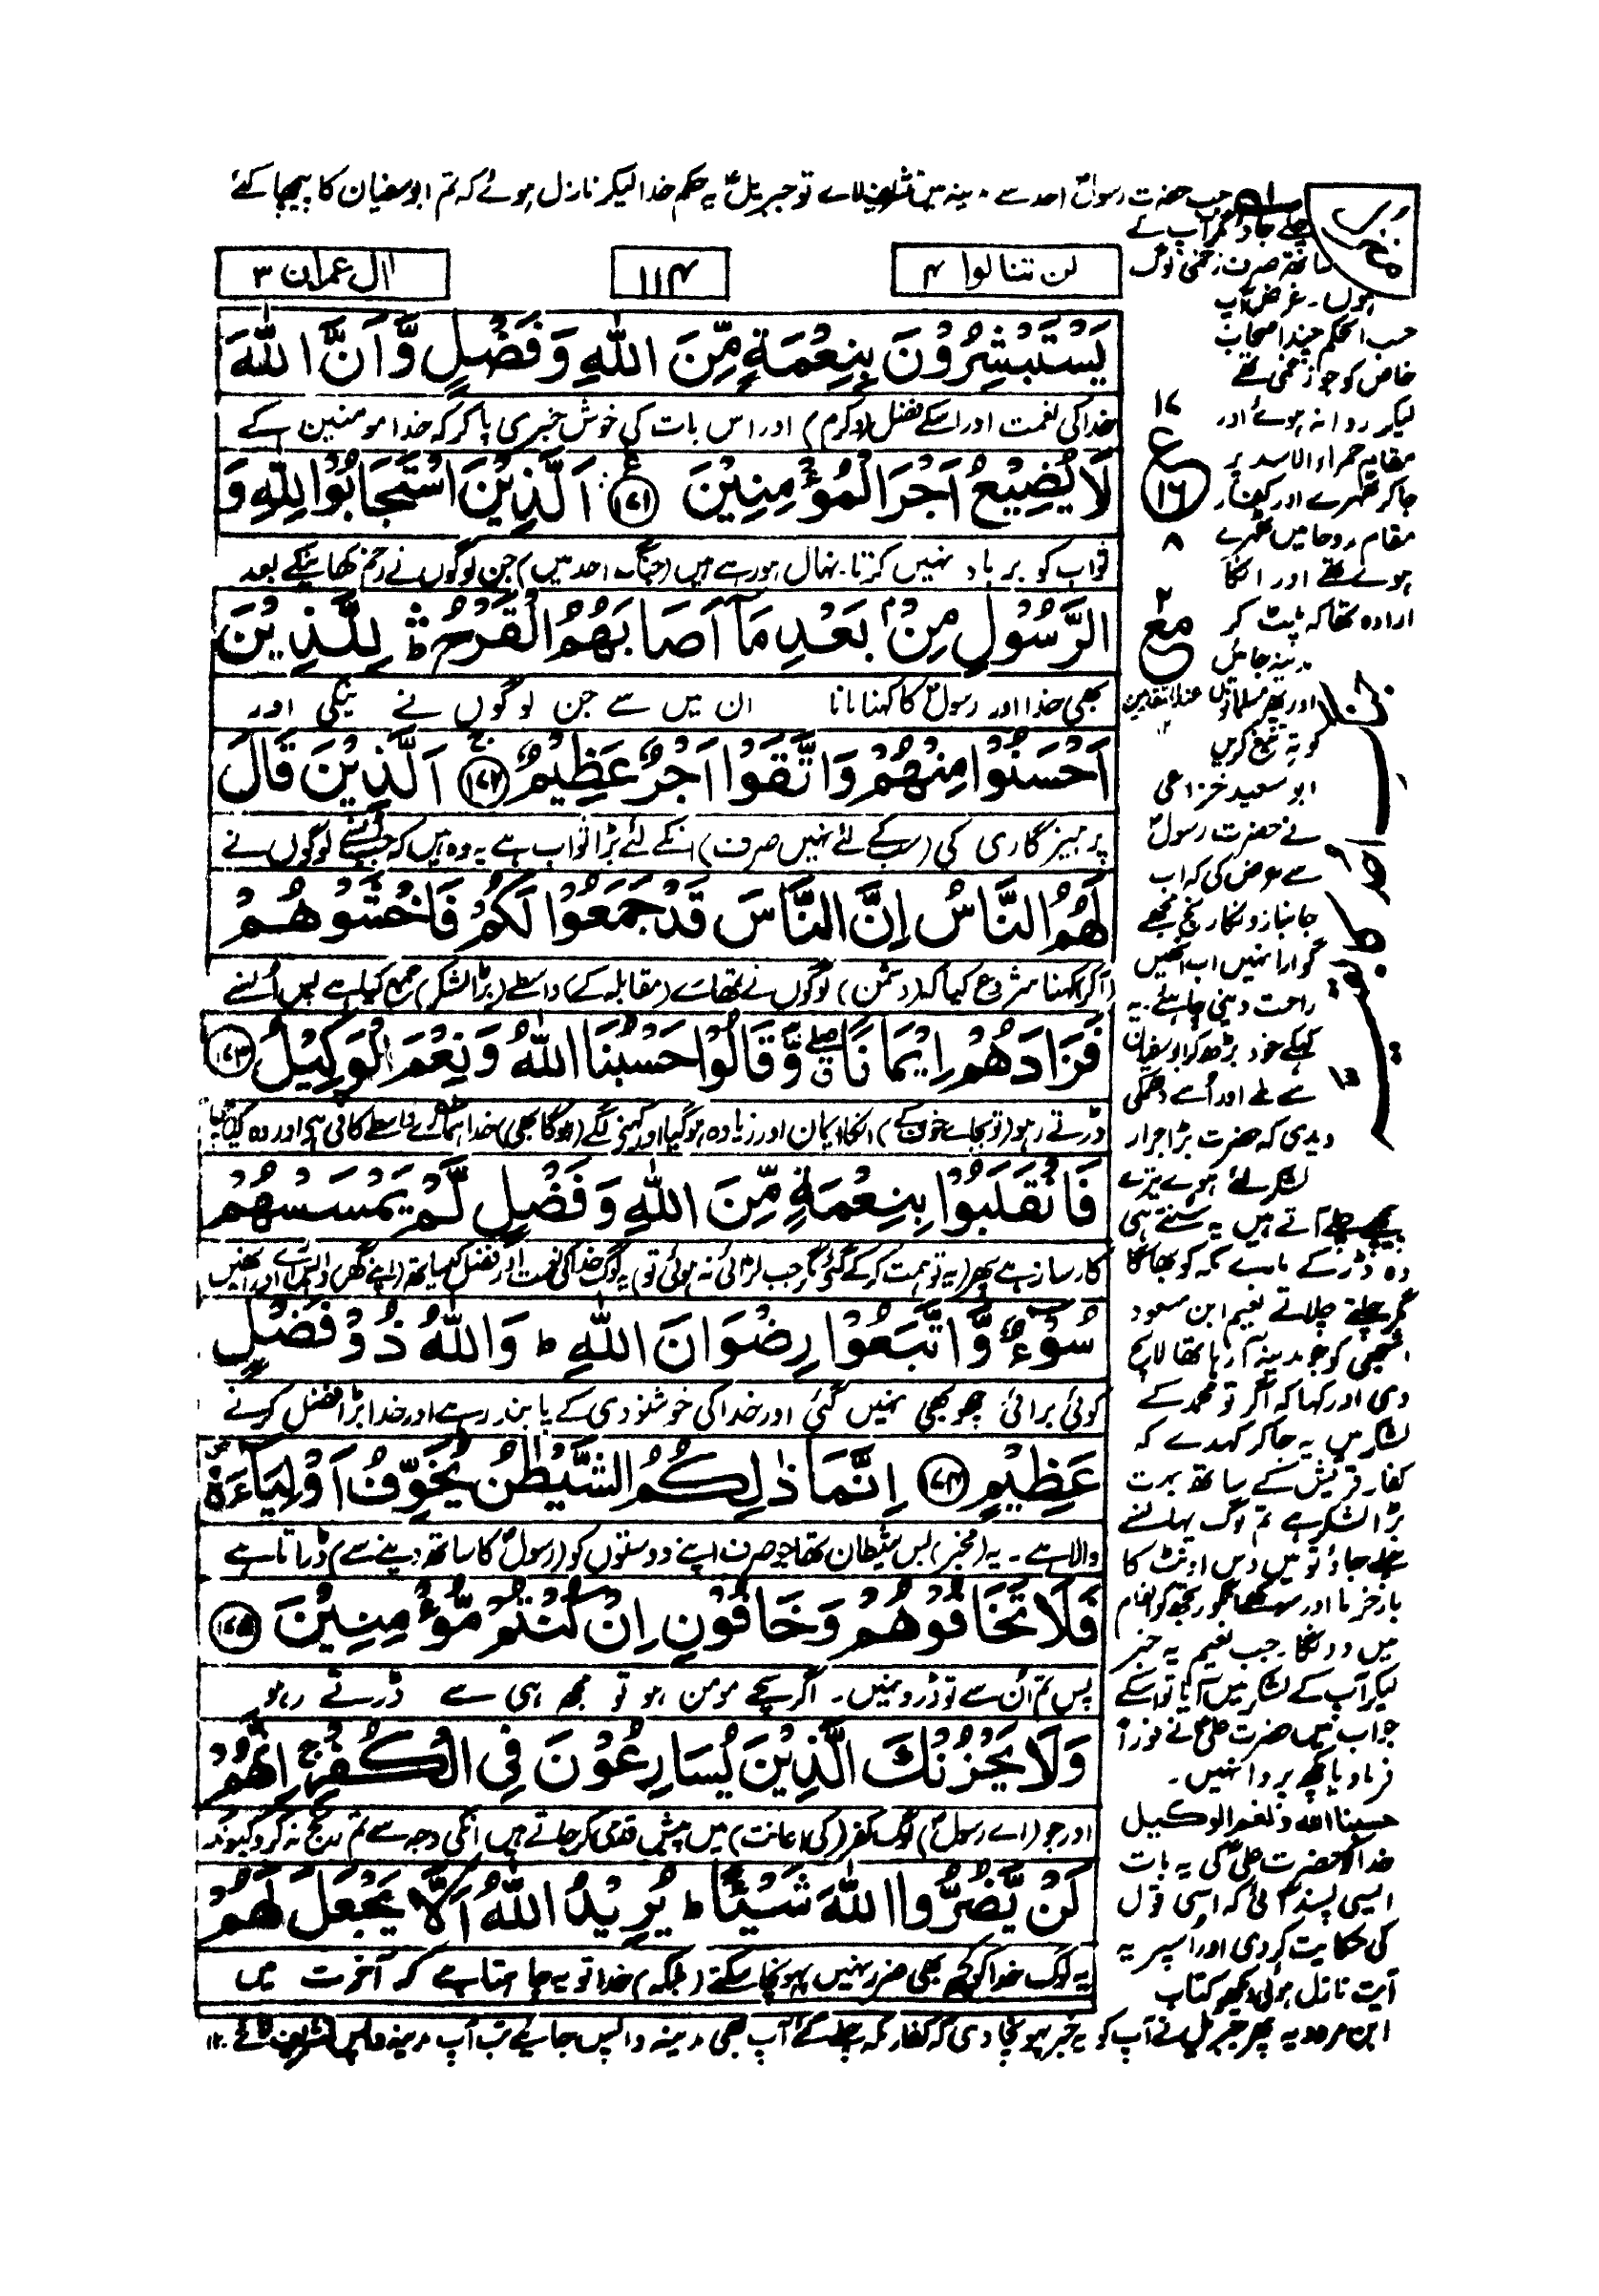 جب حضرت رسولؐ احد سے مدینہ میں تشریف لائے تو جبریلؑ یہ حکم خدا لیکر نازل ہوئے کہ تم ابوسفیان کا پیچھا کئے
چلے جاؤ مگر آپ کے
ساتھ صرف زخمی لوگ
ہوں۔ غرض آپ
حسب الحکم چند اصحاب
خاص کو جو زخمی تھے
لیکر روانہ ہوئے اور
مقام حمراء الاسد پر
جا کر ٹھہرے اور کفار
مقام روحا میں ٹھہرے
ہوئے تھے اور انکا
ارادہ تھا کہ پلٹ کر
مدینہ جائیں
اور پھر مسلمانوں
کو تہ تیغ کریں
ابو سعید خزاعی
نے حضرت رسولؐ
سے عرض کی کہ اب
جانبازونکا رنج مجھے
گوارا نہیں اب انھیں
راحت دینی چاہئے۔ یہ
کہکے خود بڑھ کر ابوسفیان
سے ملے اور اُسے دھمکی
دیدی کہ حضرت بڑا جرار
لشکر لئے ہوئے تیرے
پیچھے چلے آتے ہیں یہ سنتے ہی
وہ ڈر کے مارے مکہ کو بھاگا
مگر چلتے چلاتے نعیم ابن مسعود
اشجعی کو جو مدینہ آ رہا تھا لالچ
دی اور کہا کہ اگر تو محمد کے
لشکر میں یہ جا کر کہدے کہ
کفار قریش کے ساتھ بہت
بڑا لشکر ہے تم لوگ یہاں سے
چلے جاؤ تو میں دس اونٹ کا
بار خرما اور سوکھے انگور تجھ کو انعام
میں دونگا۔ جب نعیم یہ خبر
لیکر آپ کے لشکر میں آیا تو اسکے
جواب میں حضرت علیؑ نے فوراً
فرما دیا کچھ پروا نہیں۔
حسبنا الله و نعم الوکیل
خدا کو حضرت علیؑ کی یہ بات
ایسی پسند آئی کہ اسی قول
کی حکایت کر دی اور اسپر یہ
آیت نازل ہوئی دیکھو کتاب
ابن مردویہ پھر جبریلؑ نے آپ کو یہ خبر پہونچا دی کہ کفار مکہ چلے گئے آپ بھی مدینہ واپس جایئے تب آپ مدینہ واپس تشریف لائے ۱۲
منزل
لن تنالوا ۴
۱۱۴
اٰل عمران ۳
يَسْتَبْشِرُوْنَ بِنِعْمَةٍ مِّنَ اللّٰهِ وَفَضْلٍ وَّاَنَّ اللّٰهَ
خدا کی نعمت اور اسکے فضل (و کرم) اور اس بات کی خوش خبری پا کر کہ خدا مومنین کے
لَا يُضِيْعُ اَجْرَ الْمُؤْمِنِيْنَ ۱۷۱ اَلَّذِيْنَ اسْتَجَابُوْا لِلّٰهِ وَ
ثواب کو برباد نہیں کرتا۔ نہال ہو رہے ہیں (جنگ احد میں) جن لوگوں نے زخم کھانیکے بعد
الرَّسُوْلِ مِنْۢ بَعْدِ مَاۤ اَصَابَهُمُ الْقَرْحُ ط لِلَّذِيْنَ
بھی خدا اور رسولؐ کا کہنا مانا ان میں سے جن لوگوں نے نیکی اور
اَحْسَنُوْا مِنْهُمْ وَاتَّقَوْا اَجْرٌ عَظِيْمٌ ۱۷۲ ج اَلَّذِيْنَ قَالَ
پرہیزگاری کی (سب کے لئے نہیں صرف) انکے لئے بڑا ثواب ہے یہ وہ ہیں کہ جن سے لوگوں نے
لَهُمُ النَّاسُ اِنَّ النَّاسَ قَدْ جَمَعُوْا لَكُمْ فَاخْشَوْهُمْ
(آکر) کہنا شروع کیا کہ (دشمن) لوگوں نے تمھارے (مقابلہ کے) واسطے (بڑا لشکر) جمع کیا ہے پس اُنسے
فَزَادَهُمْ اِيْمَانًا صلے ق وَّقَالُوْا حَسْبُنَا اللّٰهُ وَنِعْمَ الْوَكِيْلُ ۱۷۳
ڈرتے رہو (تو بجائے خوف کے) انکا ایمان اور زیادہ ہو گیا اور کہنے لگے (ہوگا بھی) خدا ہمارے واسطے کافی ہے اور وہ کیا اچھا
فَانْقَلَبُوْا بِنِعْمَةٍ مِّنَ اللّٰهِ وَفَضْلٍ لَّمْ يَمْسَسْهُمْ
کارساز ہے پھر (یہ تو ہمت کر کے گئے مگر جب لڑائی نہ ہوئی تو) یہ لوگ خدا کی نعمت اور فضل کے ساتھ (اپنے گھر) واپس آئے اور انھیں
سُوْٓءٌ وَّاتَّبَعُوْا رِضْوَانَ اللّٰهِ ط وَاللّٰهُ ذُوْ فَضْلٍ
کوئی برائی چھو بھی نہیں گئی اور خدا کی خوشنودی کے پابند رہے اور خدا بڑا فضل کرنے
عَظِيْمٍ ۱۷۴ اِنَّمَا ذٰلِكُمُ الشَّيْطٰنُ يُخَوِّفُ اَوْلِيَآءَهٗ ص
والا ہے۔ یہ (مخبر) بس شیطان تھا جو صرف اپنے دوستوں کو (رسولؐ کا ساتھ دینے سے) ڈراتا ہے
فَلَا تَخَافُوْهُمْ وَخَافُوْنِ اِنْ كُنْتُمْ مُّؤْمِنِيْنَ ۱۷۵
پس تم اُن سے تو ڈرو نہیں۔ اگر سچے مومن ہو تو مجھ ہی سے ڈرتے رہو
وَلَا يَحْزُنْكَ الَّذِيْنَ يُسَارِعُوْنَ فِى الْكُفْرِ ج اِنَّهُمْ
اور جو (اے رسولؐ) لوگ کفر (کی اعانت) میں پیش قدمی کر جاتے ہیں انکی وجہ سے تم رنج نہ کرو کیونکہ
لَنْ يَّضُرُّوا اللّٰهَ شَيْـًٔا ط يُرِيْدُ اللّٰهُ اَلَّا يَجْعَلَ لَهُمْ
یہ لوگ خدا کو کچھ بھی ضرر نہیں پہونچا سکتے (بلکہ) خدا تو یہ چاہتا ہے کہ آخرت میں
۱۷
ع
۱۶
۸
۲
مع
عند المتقدمین
۱۲